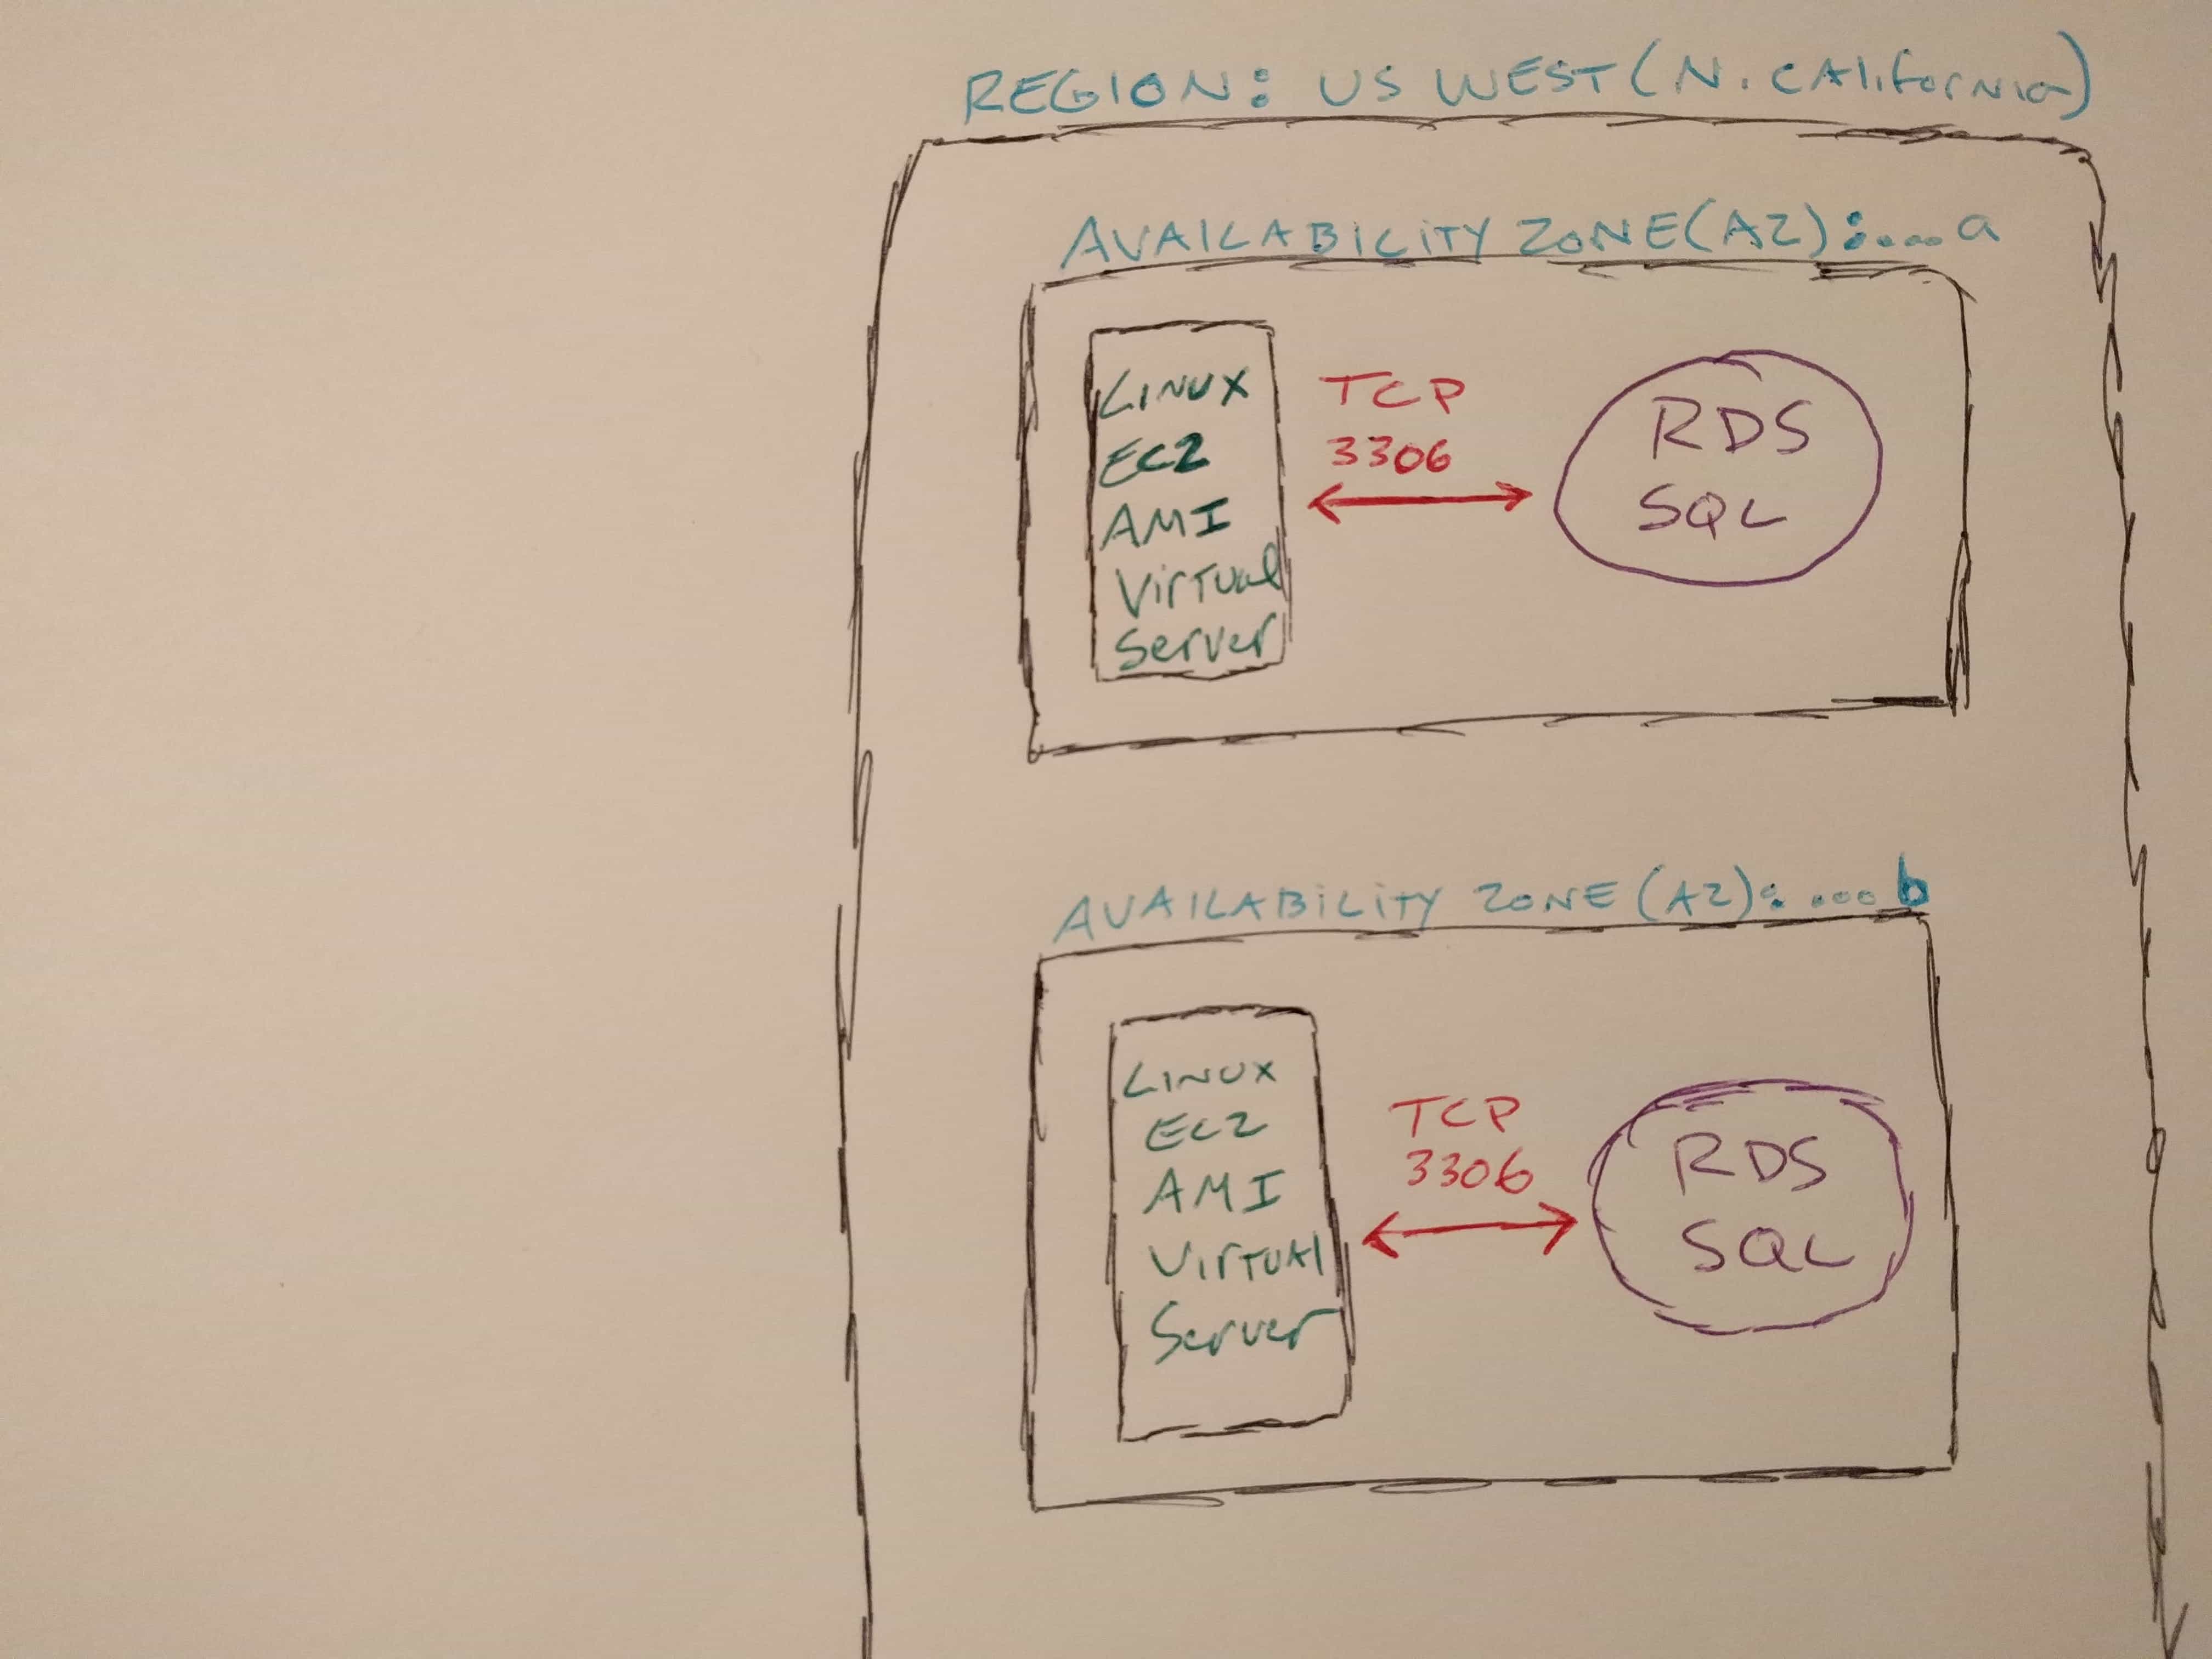 REGION: US WEST (N. CAlifornia)
AVAILABILITY ZONE (AZ):....a
LINUX
EC2
AMI
Virtual
Server
TCP
3306
RDS
SQL
AVAILABiLiTY ZONE (AZ): ....b
LINUX
EC2
AMI
VirTUAl
Server
TCP
3306
RDS
SQL